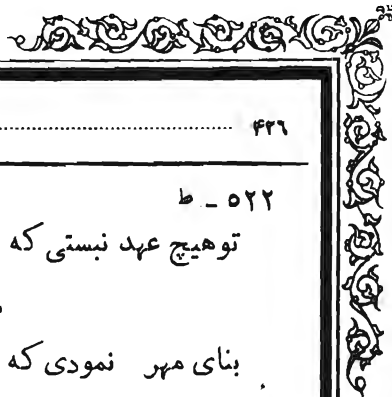 ۴۳۶
۵۲۲ - ط
توهیچ عهد نبستی که
بنای مهر نمودی که